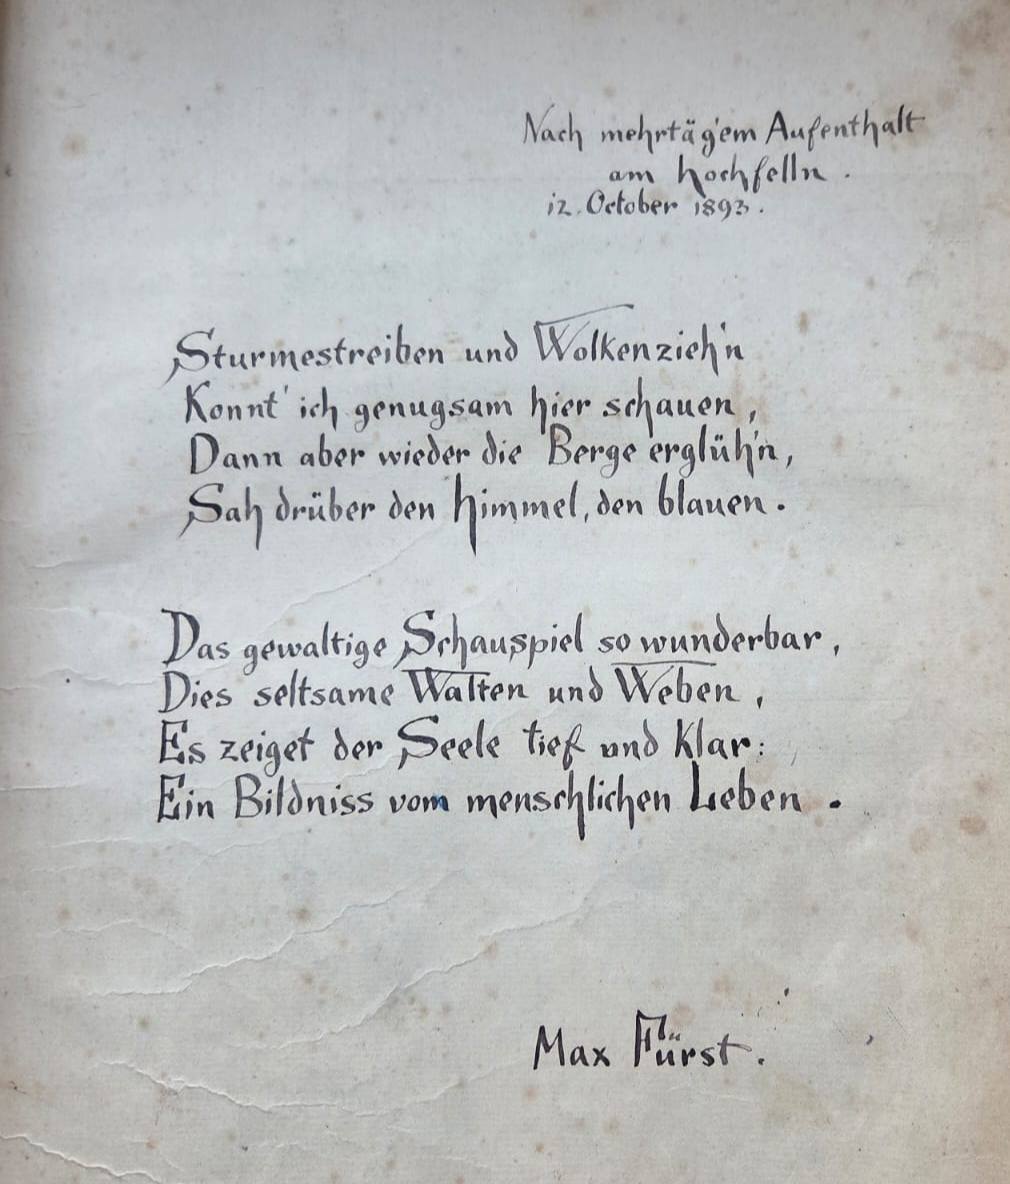 Nach mehrtäg'em Aufenthalt
am Hochfelln.
12. October 1893.
Sturmestreiben und Wolkenzieh'n
Konnt' ich genugsam hier schauen,
Dann aber wieder die Berge erglüh'n,
Sah drüber den Himmel, den blauen.
Das gewaltige Schauspiel so wunderbar,
Dies seltsame Walten und Weben,
Es zeiget der Seele tief und klar:
Ein Bildniss vom menschlichen Leben.
Max Fürst.